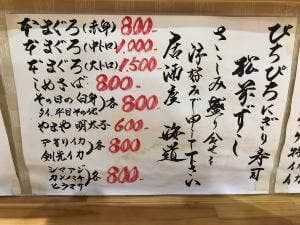 ぴちぴちにぎり寿司
松前ずし
さしみ盛り合せを
汐好みで申して下さい
居酒屋 海道
なまぐろ(赤身) 800-
なまぐろ(中トロ) 1,000-
なまぐろ(大トロ) 1,500-
しめさば 800-
その日の白身
タイ、平目その他 各 800-
やまや 明太子 600-
アオリイカ
剣先イカ 各 800-
シマアジ
カンパチ
ヒラマサ 各 800-